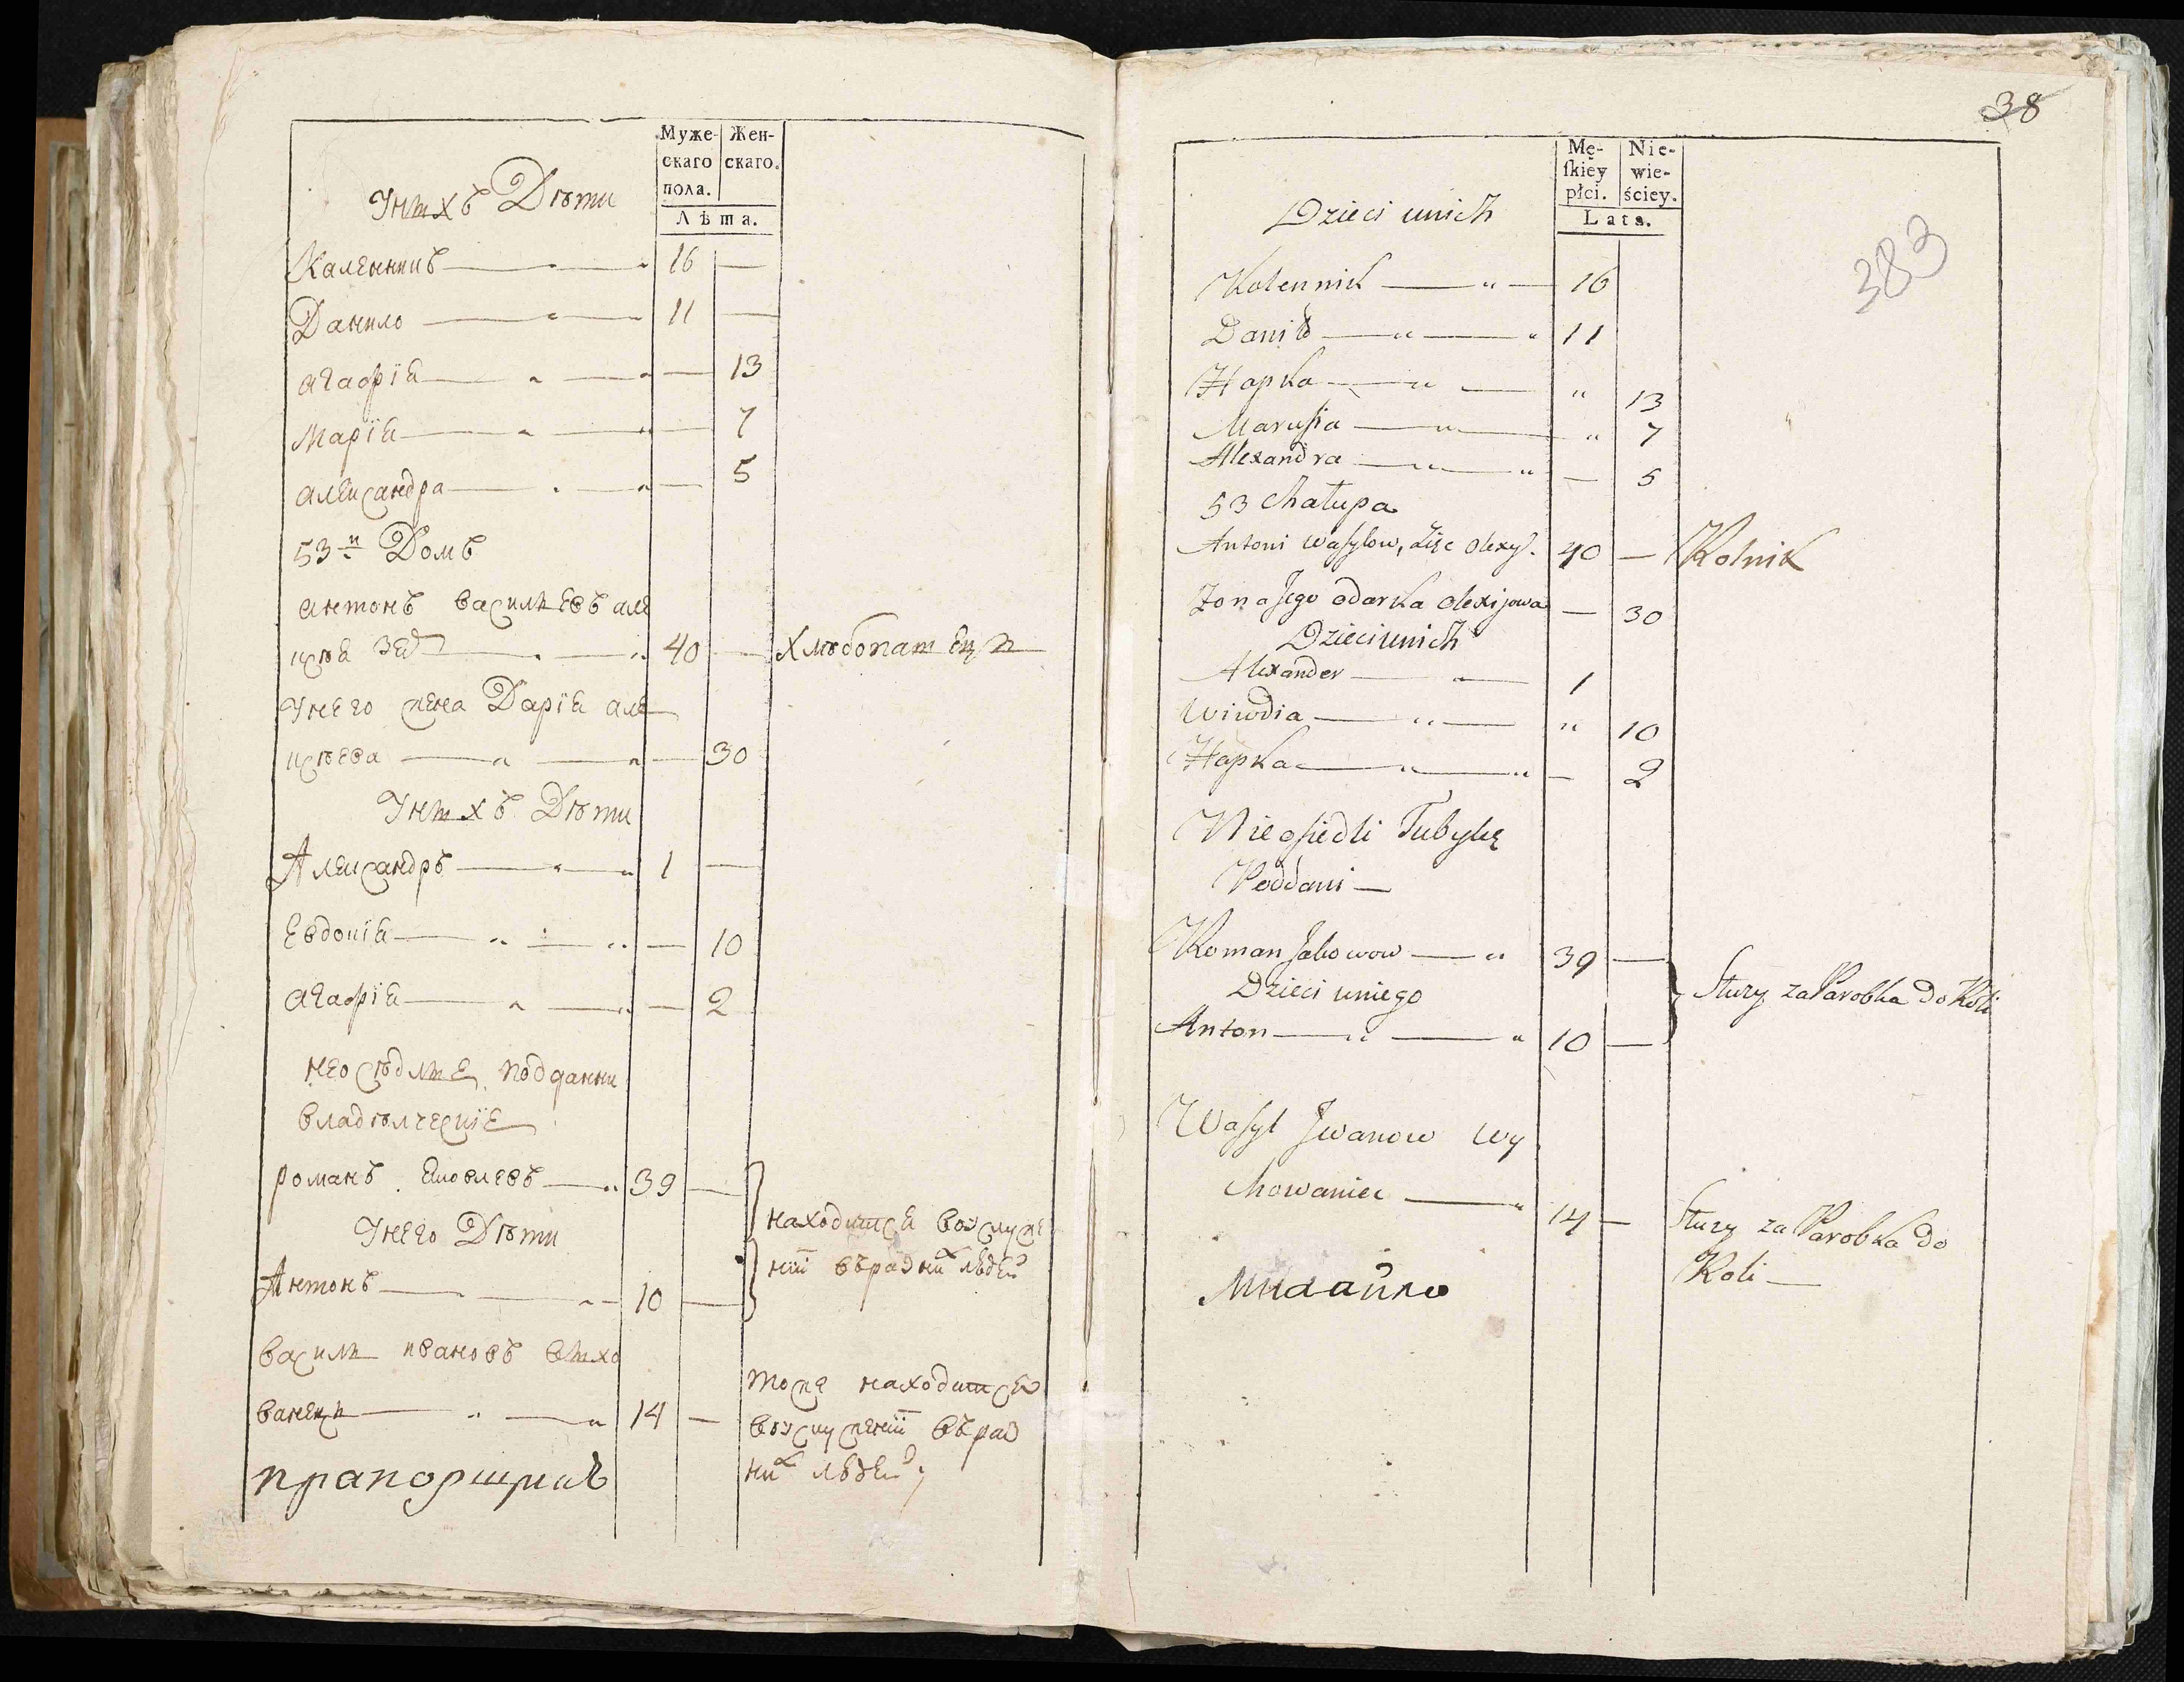 Муже-
скаго
пола.
Жен-
скаго.
Лѣта.
Унихъ Дѣти
Каленникъ 16 —
Данило 11 —
агафія — 13
Марія — 7
александра — 5
53й Домъ
антонъ васильевъ але
ксѣя зя 40 — хлѣбопашецъ
Унего жена Дарія але
ксѣева — 30
Унихъ Дѣти
Александръ 1 —
Евдокія — 10
агафія — 2
неосѣдлые подданни
владѣлческие
романъ яковлевъ 39 —
Унего Дѣти
находится вуслуже
ніи въразних людей
Антонъ 10 —
василь ивановъ выхо
ванецъ 14 —
тоже находится
вуслуженіи въраз
них людей;
прапорщикъ
38
383
Mę-
skiey
płci.
Nie-
wie-
ściey.
Lata.
Dzieci unich
Kolennik 16
Daniło 11
Hapka " 13
Marusia " 7
Alexandra — 5
53 chałupa
Antoni Wasylow, zięc Olexy. 40 — Rolnik
Zona Jego Odarka Olexijowa — 30
Dzieci unich
Alexander 1
Wiwdia " 10
Hapka — 2
Nieosiedli Tubylcę
Poddani —
Roman Jakowow 39 —
Dzieci uniego
Służy za Parobka do Roli
Anton 10 —
Wasyl Jwanow Wy
chowaniec 14 —
Służy za Parobka do
Roli —
Михайло